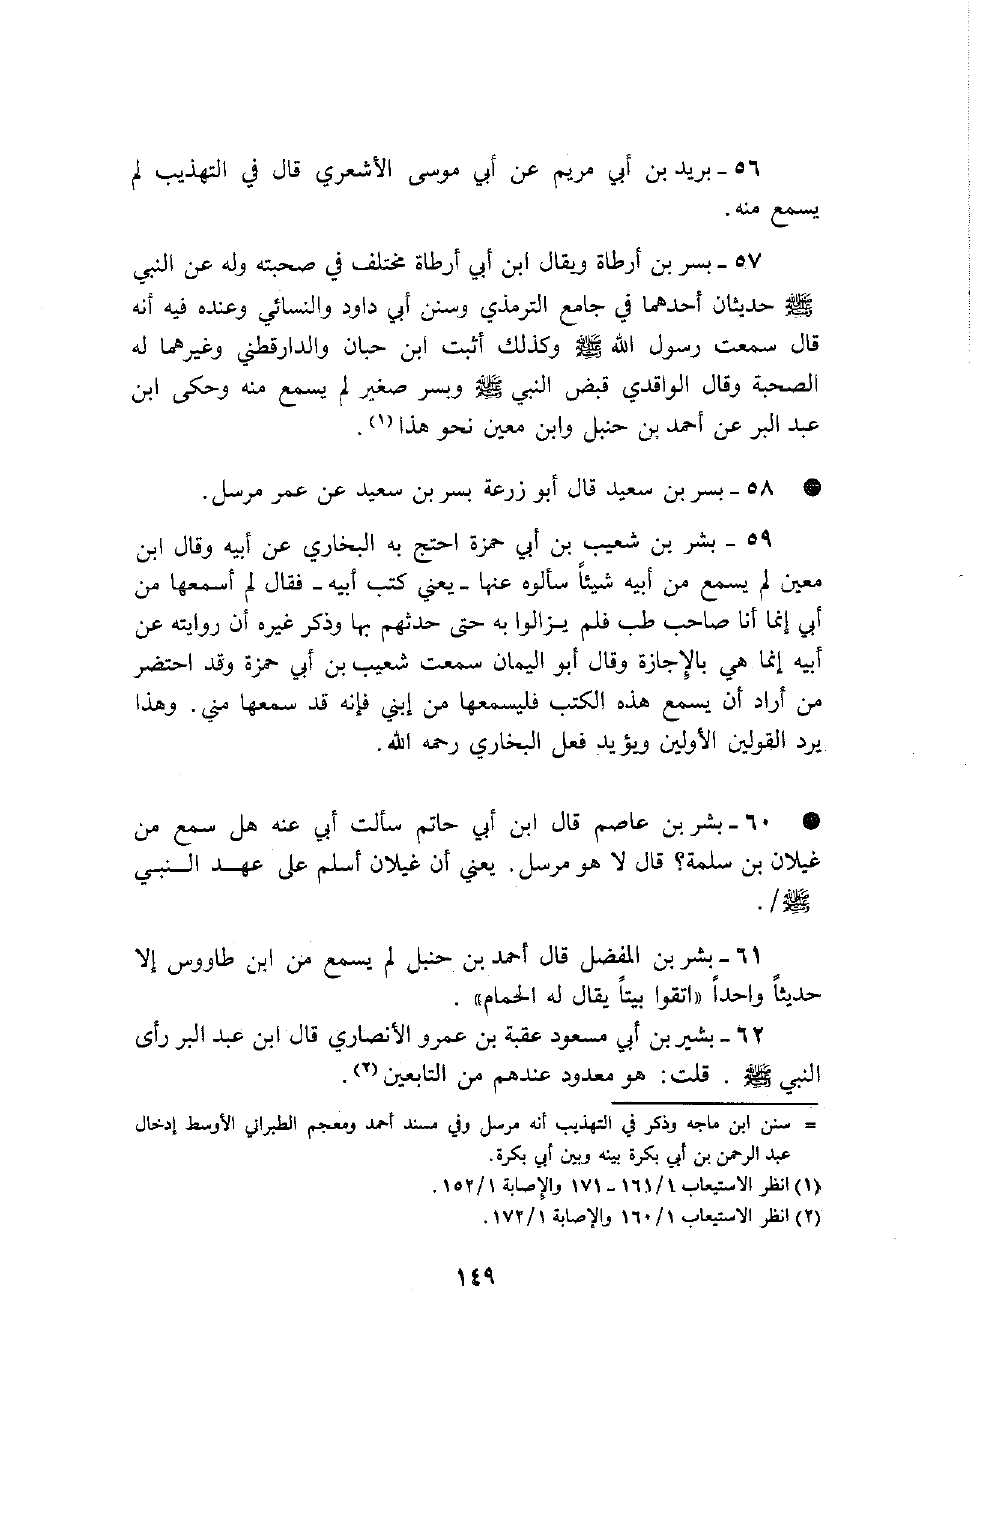 ٥٦ ـ بريد بن أبي مريم عن أبي موسى الأشعري قال في التهذيب لم
يسمع منه.
٥٧ ـ بسر بن أرطاة ويقال ابن أبي أرطاة مختلف في صحبته وله عن النبي
ﷺ حديثان أحدهما في جامع الترمذي وسنن أبي داود والنسائي وعنده فيه أنه
قال سمعت رسول الله ﷺ وكذلك أثبت ابن حبان والدارقطني وغيرهما له
الصحبة وقال الواقدي قبض النبي ﷺ وبسر صغير لم يسمع منه وحكى ابن
عبد البر عن أحمد بن حنبل وابن معين نحو هذا (١).
● ٥٨ ـ بسر بن سعيد قال أبو زرعة بسر بن سعيد عن عمر مرسل.
٥٩ ـ بشر بن شعيب بن أبي حمزة احتج به البخاري عن أبيه وقال ابن
معين لم يسمع من أبيه شيئاً سألوه عنها ـ يعني كتب أبيه ـ فقال لم أسمعها من
أبي إنما أنا صاحب طب فلم يزالوا به حتى حدثهم بها وذكر غيره أن روايته عن
أبيه إنما هي بالإجازة وقال أبو اليمان سمعت شعيب بن أبي حمزة وقد احتضر
من أراد أن يسمع هذه الكتب فليسمعها من إبني فإنه قد سمعها مني. وهذا
يرد القولين الأولين ويؤيد فعل البخاري رحمه الله.
● ٦٠ ـ بشر بن عاصم قال ابن أبي حاتم سألت أبي عنه هل سمع من
غيلان بن سلمة؟ قال لا هو مرسل. يعني أن غيلان أسلم على عهد النبي
ﷺ/.
٦١ ـ بشر بن المفضل قال أحمد بن حنبل لم يسمع من ابن طاووس إلا
حديثاً واحداً «اتقوا بيتاً يقال له الحمام».
٦٢ ـ بشير بن أبي مسعود عقبة بن عمرو الأنصاري قال ابن عبد البر رأى
النبي ﷺ. قلت: هو معدود عندهم من التابعين (٢).
= سنن ابن ماجه وذكر في التهذيب أنه مرسل وفي مسند أحمد ومعجم الطبراني الأوسط إدخال
عبد الرحمن بن أبي بكرة بينه وبين أبي بكرة.
(١) انظر الاستيعاب ١/ ١٦١ ـ ١٧١ والإصابة ١/ ١٥٢.
(٢) انظر الاستيعاب ١/ ١٦٠ والإصابة ١/ ١٧٢.
١٤٩